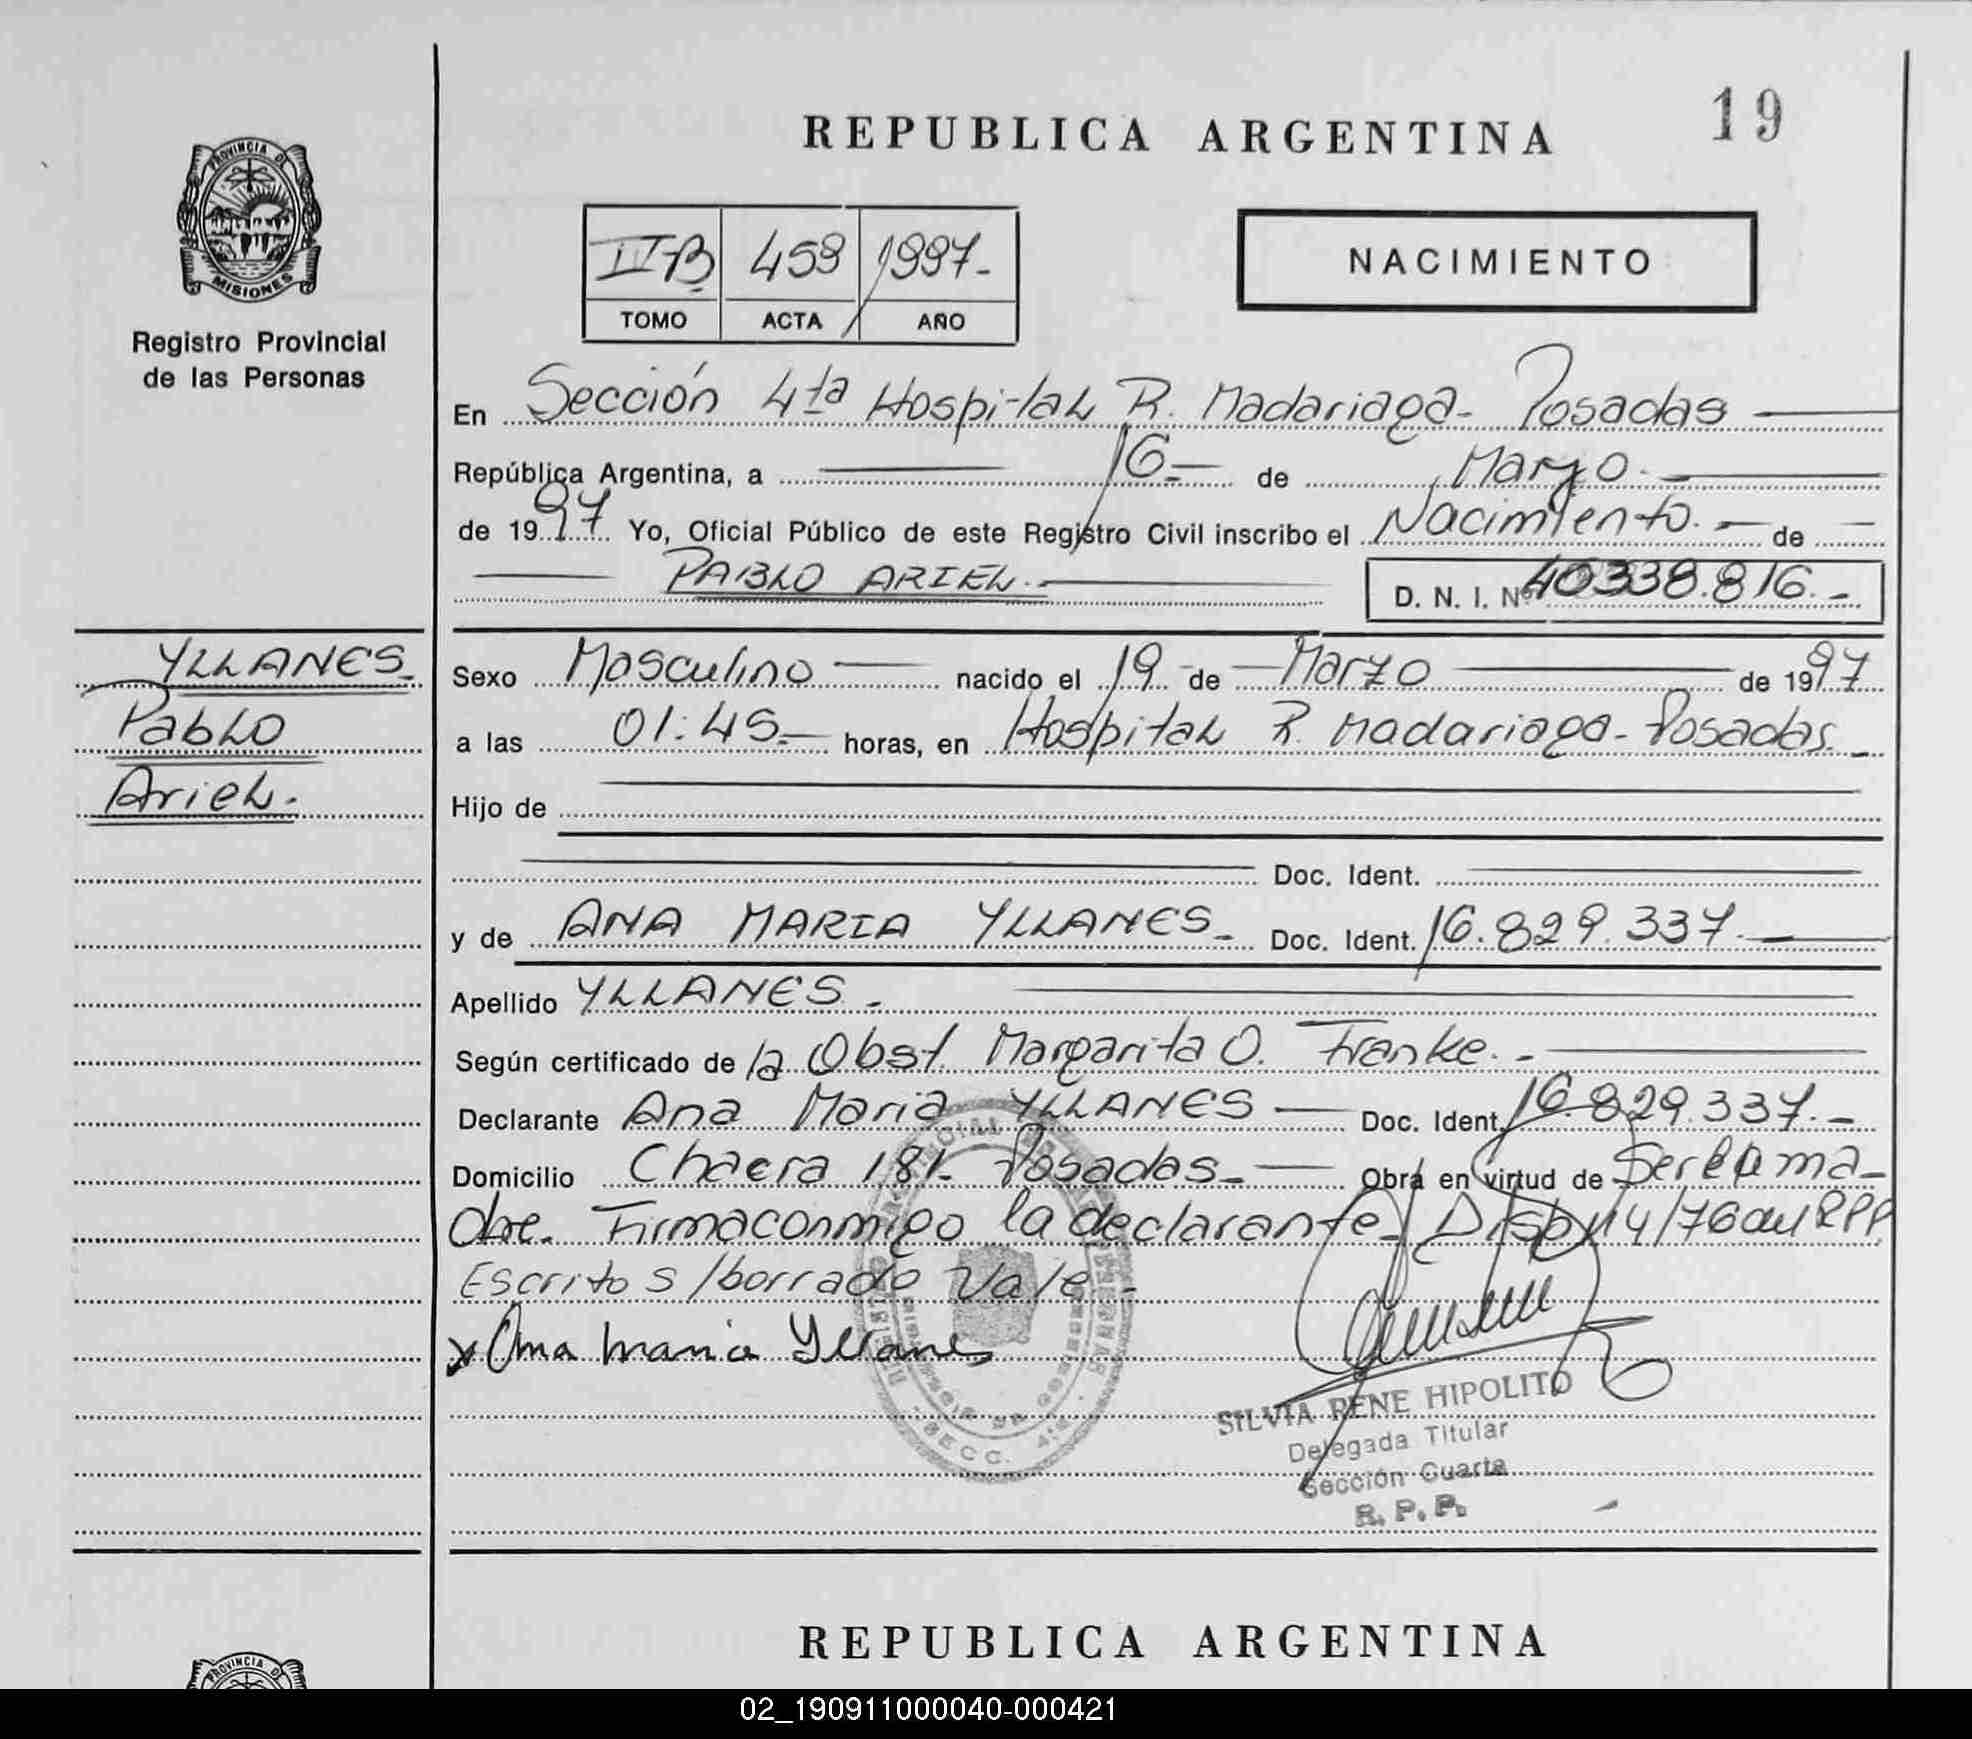 REPUBLICA ARGENTINA
19
PROVINCIA DE
MISIONES
Registro Provincial
de las Personas
II-B 459 1997.-
TOMO ACTA AÑO
NACIMIENTO
En Sección 4ta Hospital R. Madariaga- Posadas
República Argentina, a 16 de Marzo.
de 1997 Yo, Oficial Público de este Registro Civil inscribo el Nacimiento. de
PABLO ARIEL.
D. N. I. Nº 40338.816.-
YLLANES.
Pablo
Ariel.
Sexo Masculino nacido el 19 de Marzo de 1997
a las 01:45.- horas, en Hospital R Madariaga- Posadas.
Hijo de
Doc. Ident.
y de ANA MARIA YLLANES.- Doc. Ident. 16.829.337.-
Apellido YLLANES.-
Según certificado de la Obst. Margarita O. Franke.-
Declarante Ana Maria YLLANES Doc. Ident. 16.829.337.-
Domicilio Chacra 181- Posadas.- Obra en virtud de Ser la ma-
dre. Firma conmigo la declarante. Disp 114/76 del RPP.
Escrito s/borrado Vale.-
x Ana maria Yllanes
SECC. 4ta.
SILVIA RENE HIPOLITO
Delegada Titular
Sección Cuarta
R. P. P.
REPUBLICA ARGENTINA
PROVINCIA D
02_190911000040-000421